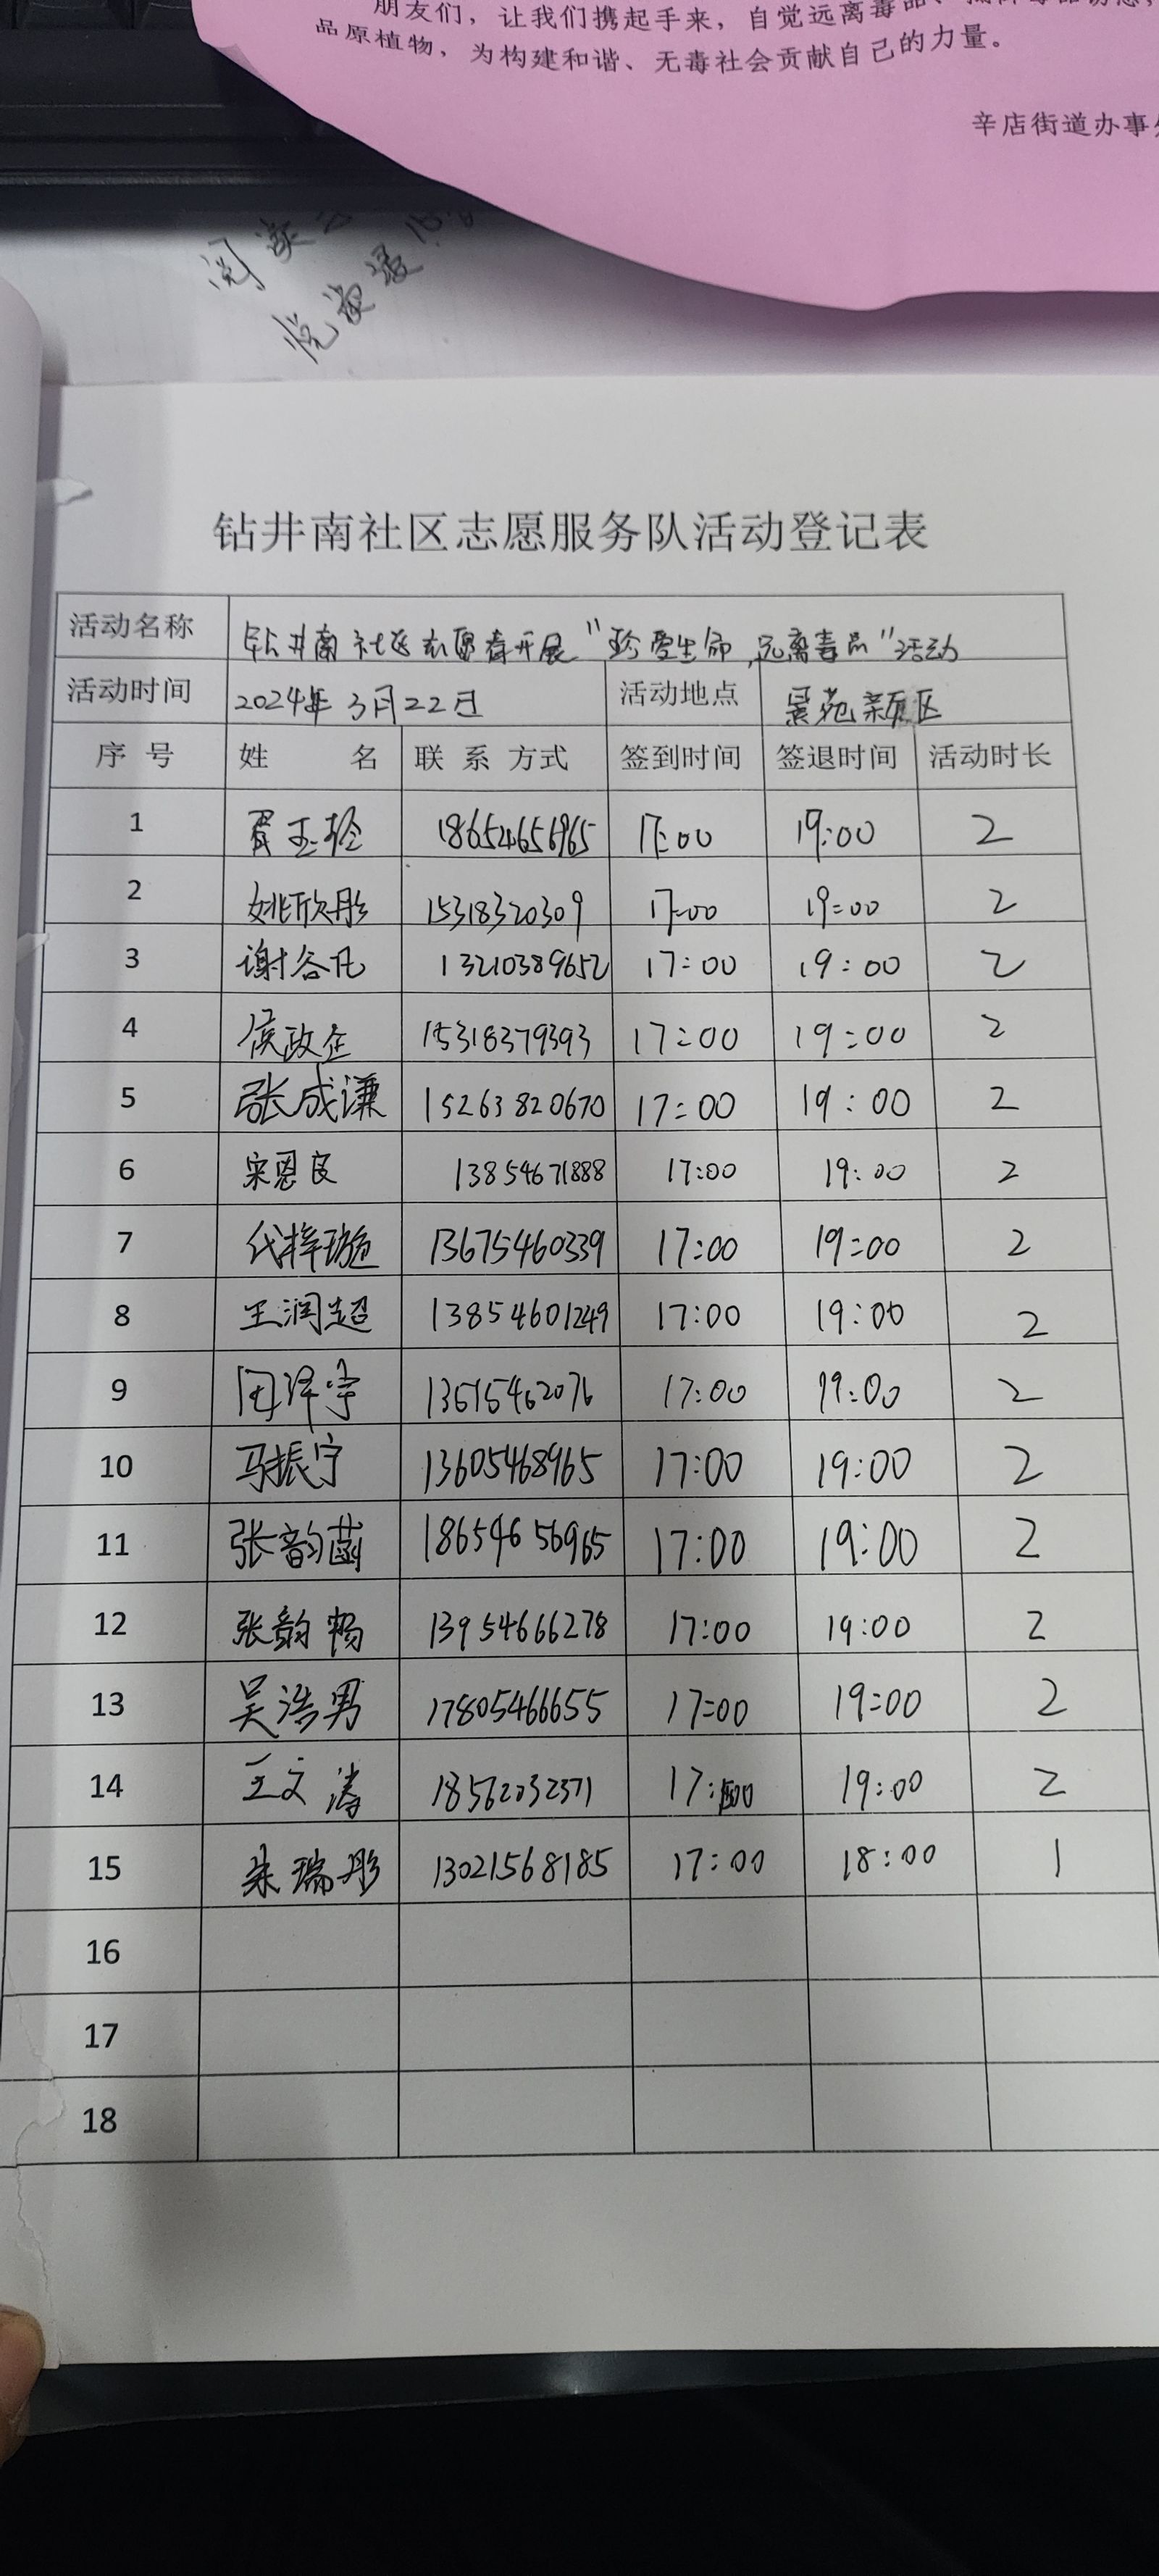 朋友们，让我们携起手来，自觉远离毒品、
品原植物，为构建和谐、无毒社会贡献自己的力量。
辛店街道办事
钻井南社区志愿服务队活动登记表
活动名称 钻井南社区志愿者开展"珍爱生命,远离毒品"活动
活动时间 2024年3月22日 活动地点 景苑新区
序号 姓名 联系方式 签到时间 签退时间 活动时长
1 贾玉玲 18654656965 17:00 19:00 2
2 姚欣彤 15318320309 17:00 19:00 2
3 谢谷凡 13210389652 17:00 19:00 2
4 侯政企 15318379393 17:00 19:00 2
5 张成谦 15263820670 17:00 19:00 2
6 宋恩良 13854671888 17:00 19:00 2
7 代梓璇 13675460339 17:00 19:00 2
8 王润超 13854601249 17:00 19:00 2
9 泽宇 13615462076 17:00 19:00 2
10 马振宁 13605468965 17:00 19:00 2
11 张韵菡 18654656965 17:00 19:00 2
12 张韵畅 13954666278 17:00 19:00 2
13 吴浩男 17805466655 17:00 19:00 2
14 王文涛 18562032371 17:00 19:00 2
15 朱瑞彤 13021568185 17:00 18:00 1
16
17
18